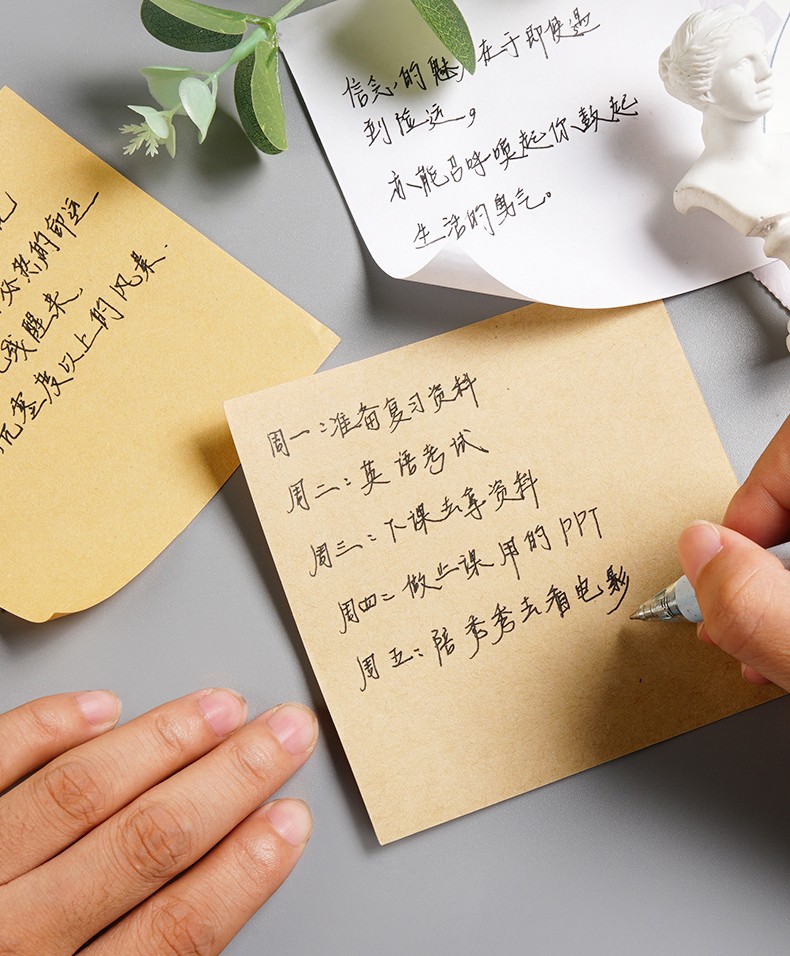 信念的魅 在于即使遇
到险运,
亦能召呼唤起你鼓起
生活的勇气。
必然的命运
醒来,
度以上的风暴.
周一:准备复习资料
周二:英语考试
周三:下课去拿资料
周四:做上课用的PPT
周五:陪秀秀去看电影